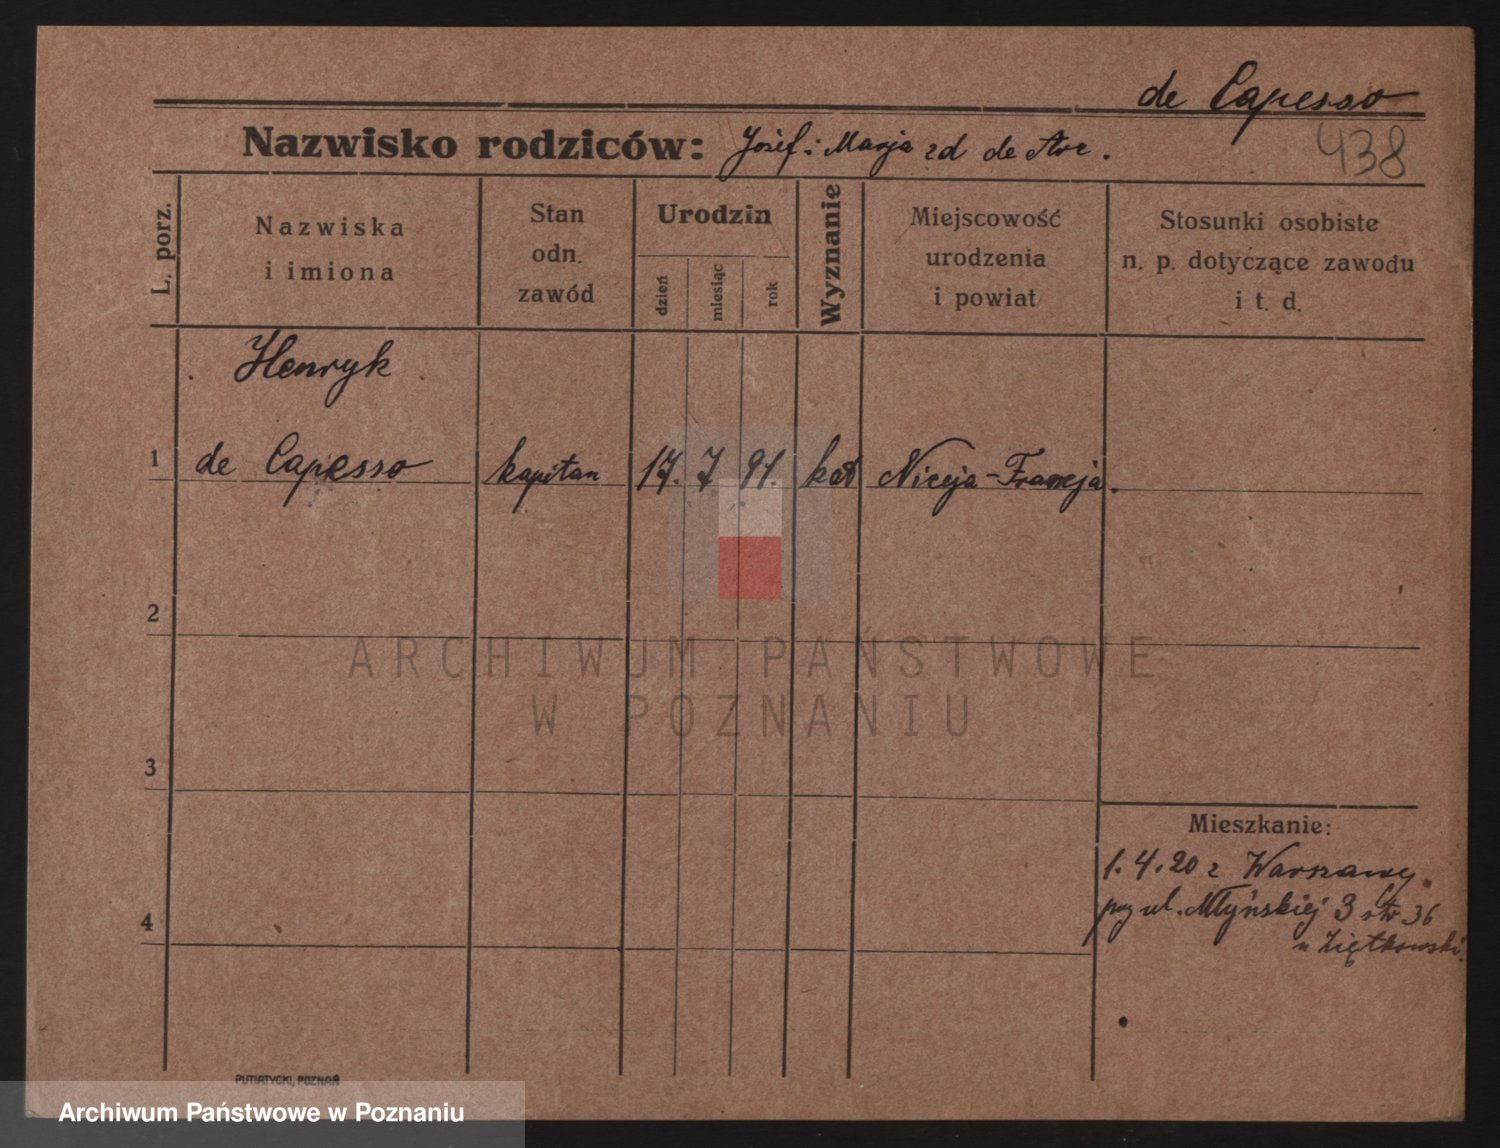 de Capesso
Nazwisko rodziców: Józef i Marja zd de Arc.
438
L. porz.
Nazwiska
i imiona
Stan
odn.
zawód
Urodzin
dzień
miesiąc
rok
Wyznanie
Miejscowość
urodzenia
i powiat
Stosunki osobiste
n. p. dotyczące zawodu
i t. d.
Henryk
1 de Capesso kapitan 17. 7 91. kat Niceja - Francja.
2
3
4
Mieszkanie:
1.4.20 z Warszawy.
przy ul. Młyńskiej 3 ptr 36
u Ziętkowski.
ARCHIWUM PAŃSTWOWE
W POZNANIU
PUTIATYCKI, POZNAŃ
Archiwum Państwowe w Poznaniu